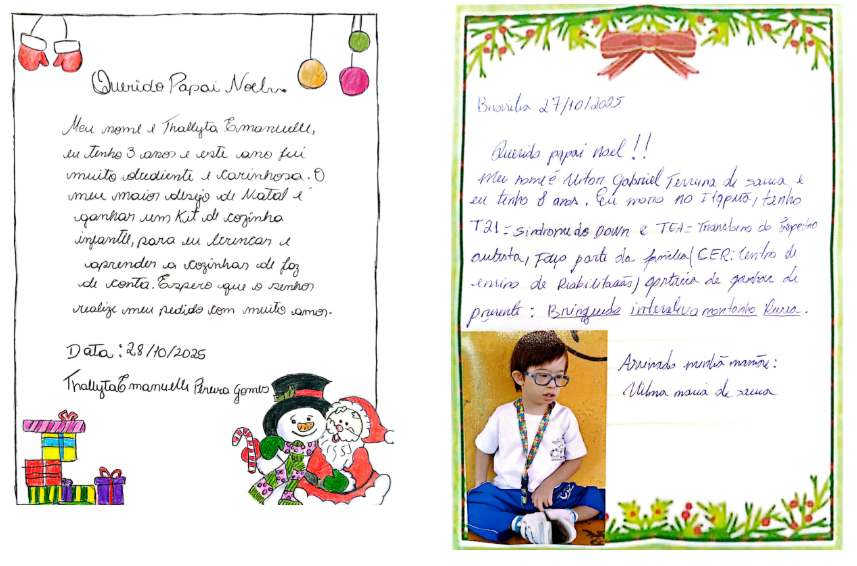 Querido Papai Noel...
Meu nome é Thallyta Emanuelle,
eu tenho 3 anos e este ano fui
muito obediente e carinhosa. O
meu maior desejo de Natal é
ganhar um Kit de cozinha
infantil, para eu brincar e
aprender a cozinhar de faz
de conta. Espero que o senhor
realize meu pedido com muito amor.
Data: 28/10/2025
Thallyta Emanuelle Pereira Gomes
27/10/2025
Querido papai noel!!
Meu nome é Vitor Gabriel de sousa e
eu tenho 8 anos. Eu moro no Itapoã, tenho
T21 = Síndrome de DOWN e TEA = Transtorno do
autista, Faço parte da família (CER: Centro de
ensino de gostaria de ganhar de
presente: Brinquedo interativo montanha Russa.
Assinado minhã mamãe:
Vilma maria de sousa